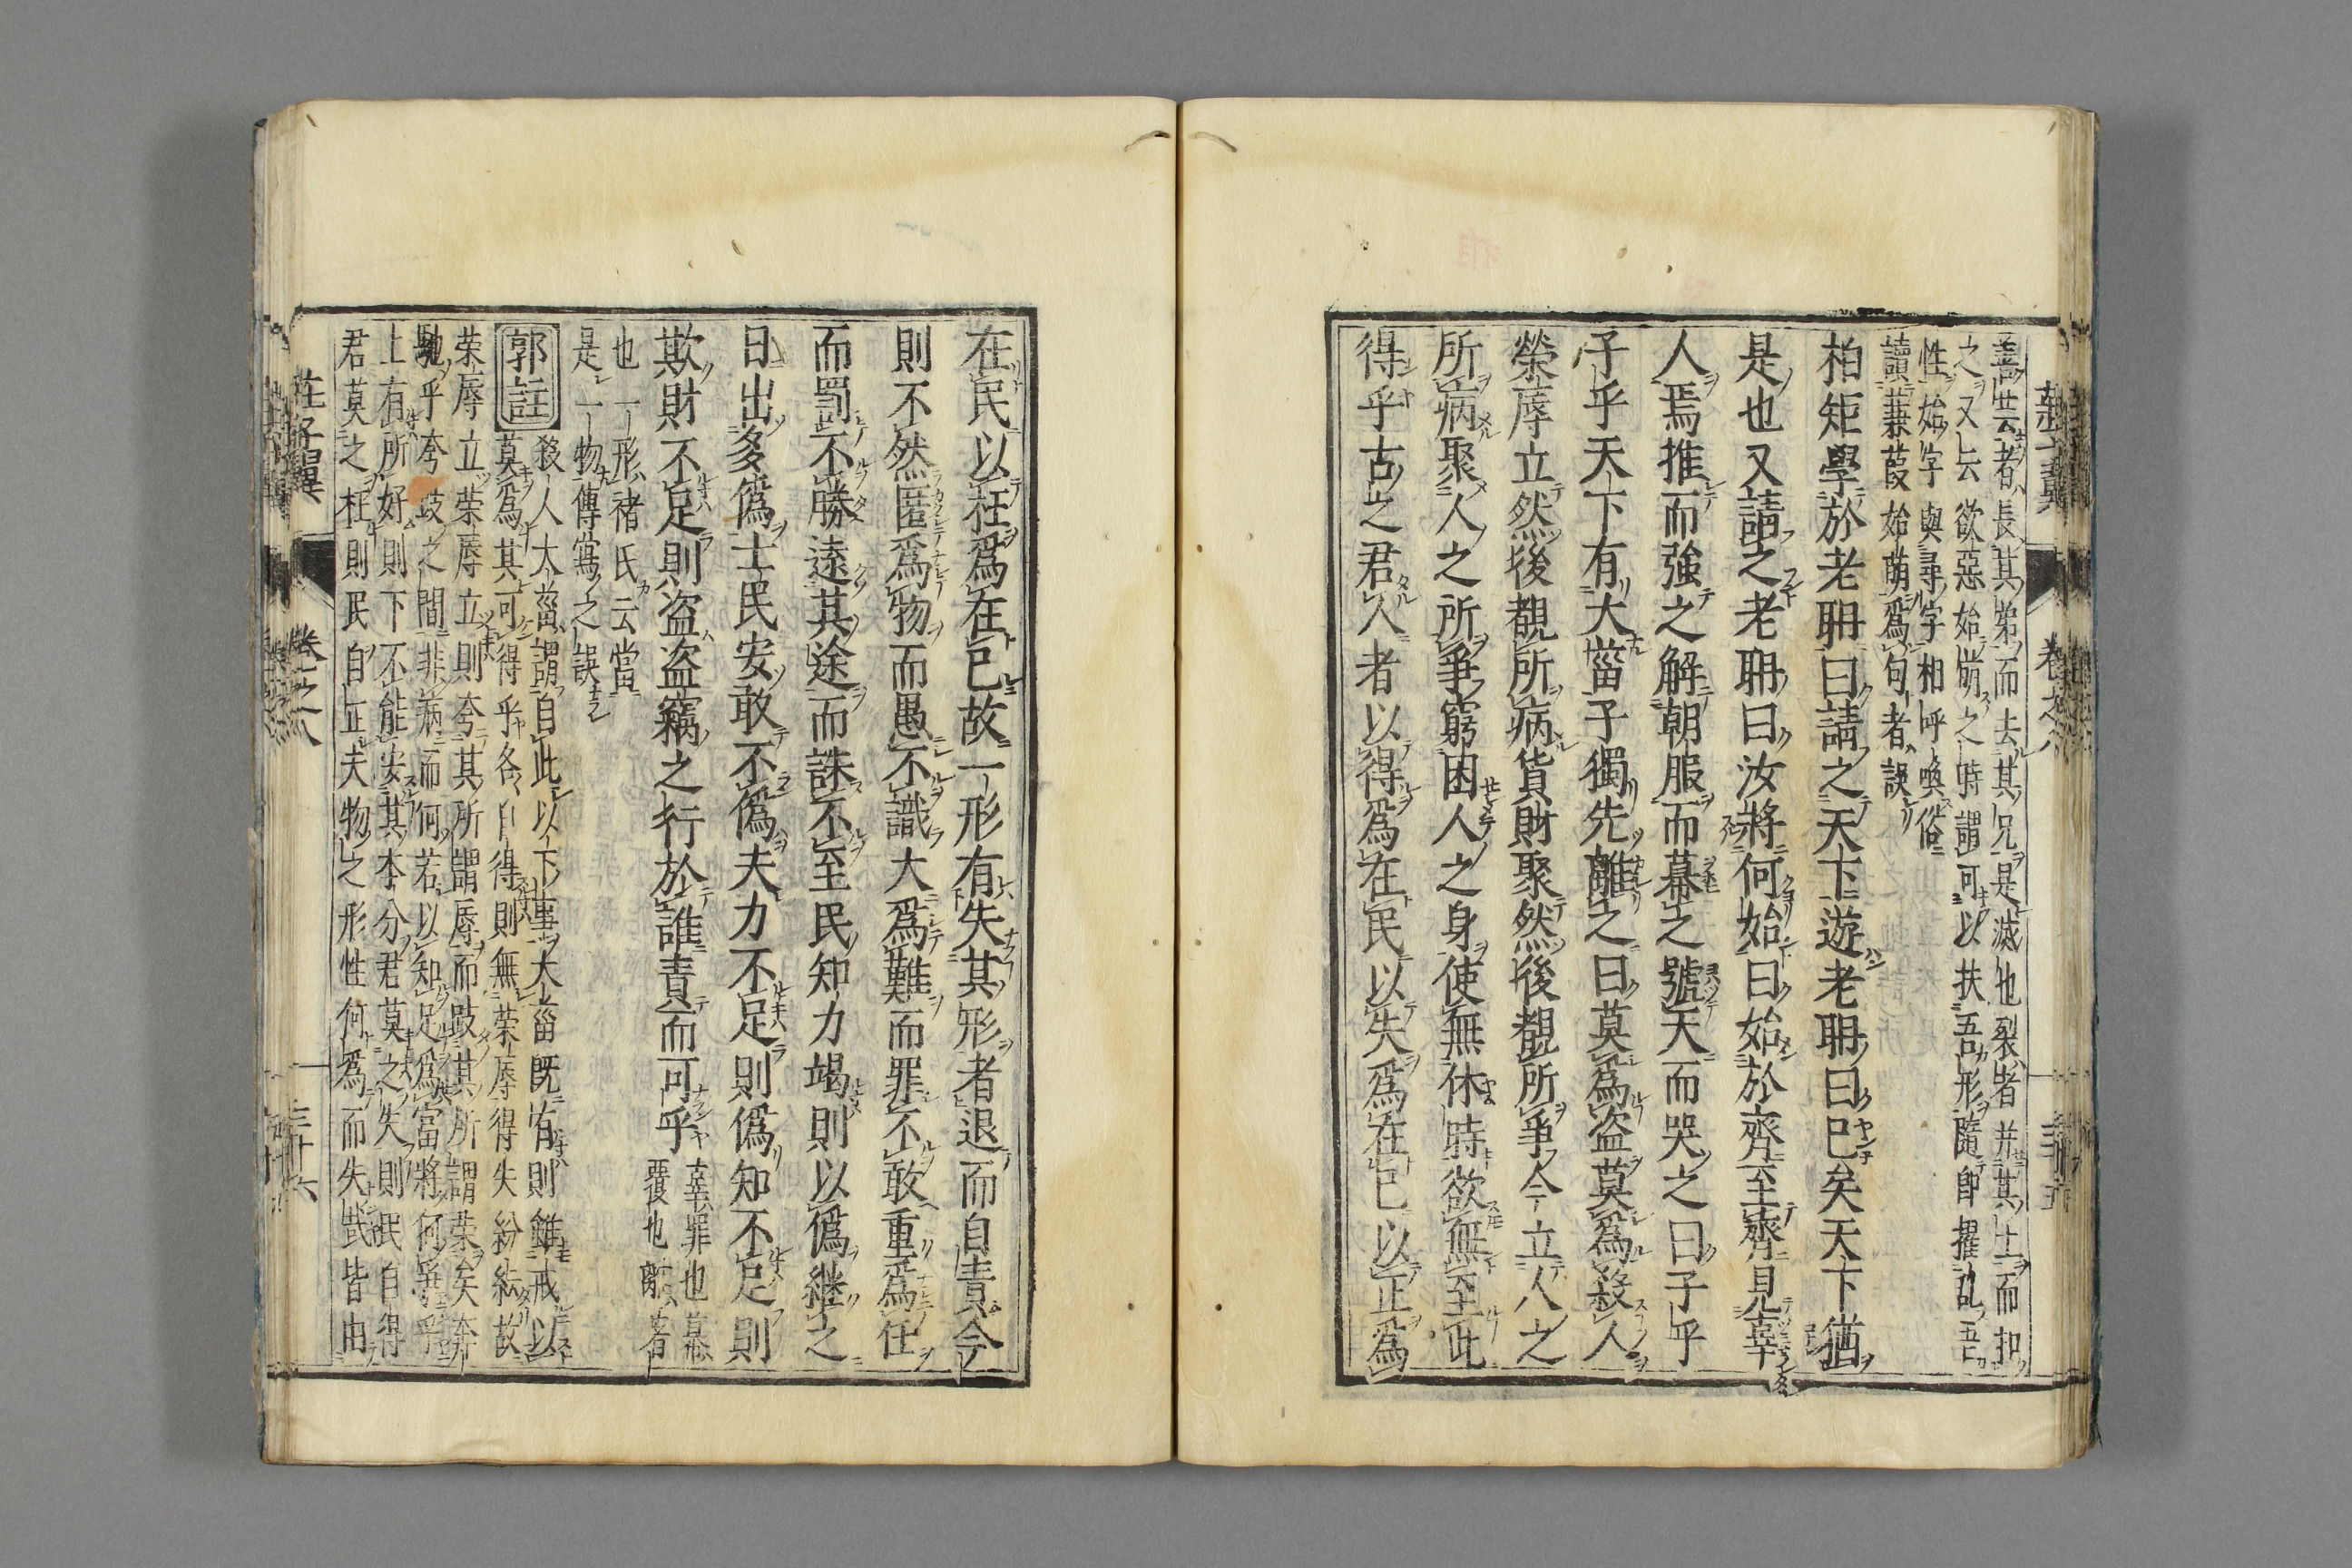 善芸者長其苐而去其兄是滅也裂者并其土而抇
之又云欲惡始萠之時謂可以扶吾形隨即擢乱吾
性始字與尋字相呼喚俗
讀蒹葭始萠爲句者誤
柏矩學於老聃曰請之天下遊老聃曰已矣天下猶
是也又請之老聃曰汝將何始曰始於齊至齊見辜
人焉推而強之解朝服而幕之號天而哭之曰子乎
子乎天下有大菑子獨先離之曰莫爲盗莫爲殺人
榮辱立然後覩所病貨財聚然後覩所爭今立人之
所病聚人之所爭窮困人之身使無休時欲無至此
得乎古之君人者以得爲在民以失爲在已以正爲
在民以枉爲在已故一形有失其形者退而自責今
則不然匿爲物而愚不識大爲難而罪不敢重爲任
而罰不勝遠其途而誅不至民知力竭則以僞継之
日出多僞士民安敢不僞夫力不足則僞知不足則
欺財不足則盗盗竊之行於誰責而可乎
辜罪也幕
覆也離者
也一形褚氏云當
是一物傳寫之誤
郭註
殺人大菑謂自此以下事大菑既有則雖戒以
莫爲其可得乎各自得則無榮辱得失紛紜故
荣辱立荣辱立則夸其所謂辱而跂其所謂荣矣奔
馳乎夸跂之間非病而何若以知足爲富將何爭乎
上有所好則下不能安其本分君莫之失則民自得
君莫之枉則民自正夫物之形性何爲而失哉皆由
莊子翼
卷之八
三十六
卷之八